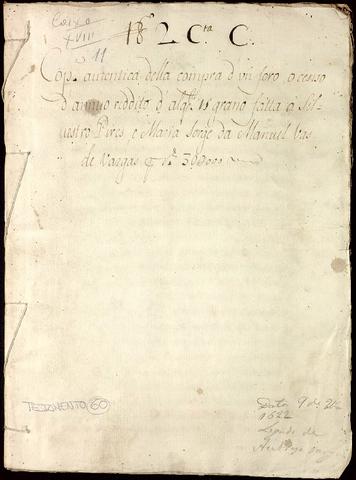 Caixa
XVIII
n 11
18.º 2 C.ta C.
Cop.ª autentica della compra d'un foro o censo
d'annuo reddito d'alq.i 11 grano fatta a Sil-
uestro Pires, e Maria Jorge da Manuel Vas
de Vargas
TESTAMENTO 60
Data 9 de
1622